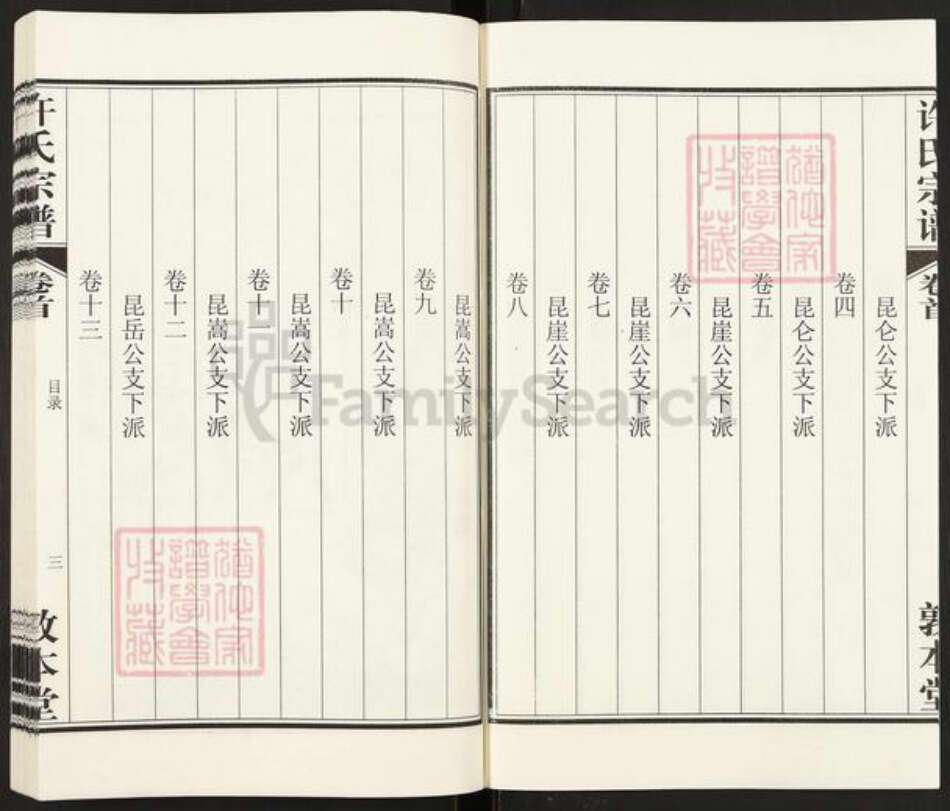 许氏宗谱
卷首
敦本堂
昆仑公支下派
卷四
昆仑公支下派
卷五
昆崖公支下派
卷六
昆崖公支下派
卷七
昆崖公支下派
卷八
猶他家
譜學會
收藏
昆嵩公支下派
卷九
昆嵩公支下派
卷十
昆嵩公支下派
卷十一
昆嵩公支下派
卷十二
昆岳公支下派
卷十三
许氏宗谱
卷首
目录
三
敦本堂
猶他家
譜學會
收藏
FamilySearch